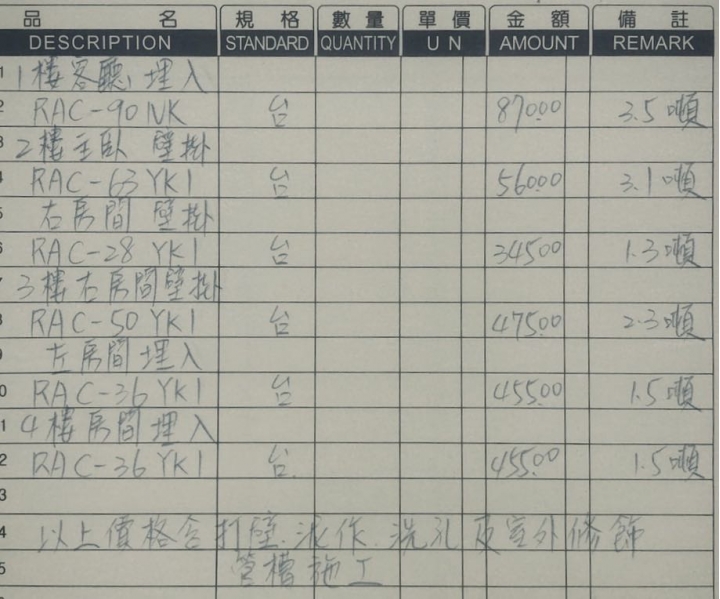 品 名 規 格 數 量 單 價 金 額 備 註
DESCRIPTION STANDARD QUANTITY U N AMOUNT REMARK
1 1樓客廳 埋入
2 RAC-90 NK 台 87000 3.5噸
3 2樓主臥 壁掛
4 RAC-63 YK1 台 56000 3.1噸
5 右房間 壁掛
6 RAC-28 YK1 台 34500 1.3噸
7 3樓右房間壁掛
8 RAC-50 YK1 台 47500 2.3噸
9 左房間埋入
0 RAC-36 YK1 台 45500 1.5噸
1 4樓房間埋入
2 RAC-36 YK1 台 45500 1.5噸
3
4 以上價格含打壁.泥作.洗孔及室外修飾
5 管槽施工